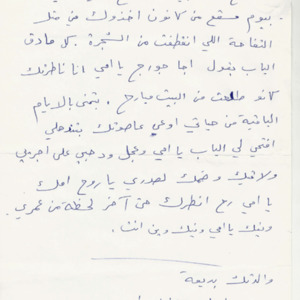 بيوم مسقع من كانون اخذوك من متل
التفاحة اللي انقطفت من الشجرة. كل ما دق
الباب بقول اجا جورج يا امي انا ناطرتك
كانو طلعت من البيت مبارح. بتمنى بالايام
الباقية من حياتي اوعى عاصوتك بتندهلي
افتحي لي الباب يا امي وعجل ودحبي على اجريي
ولاقيك وضمك لصدري يا روح امك
يا امي رح انطرك حتى آخر لحظة من عمري.
ونيك يا امي ونيك وين انت.
والدتك بديعة